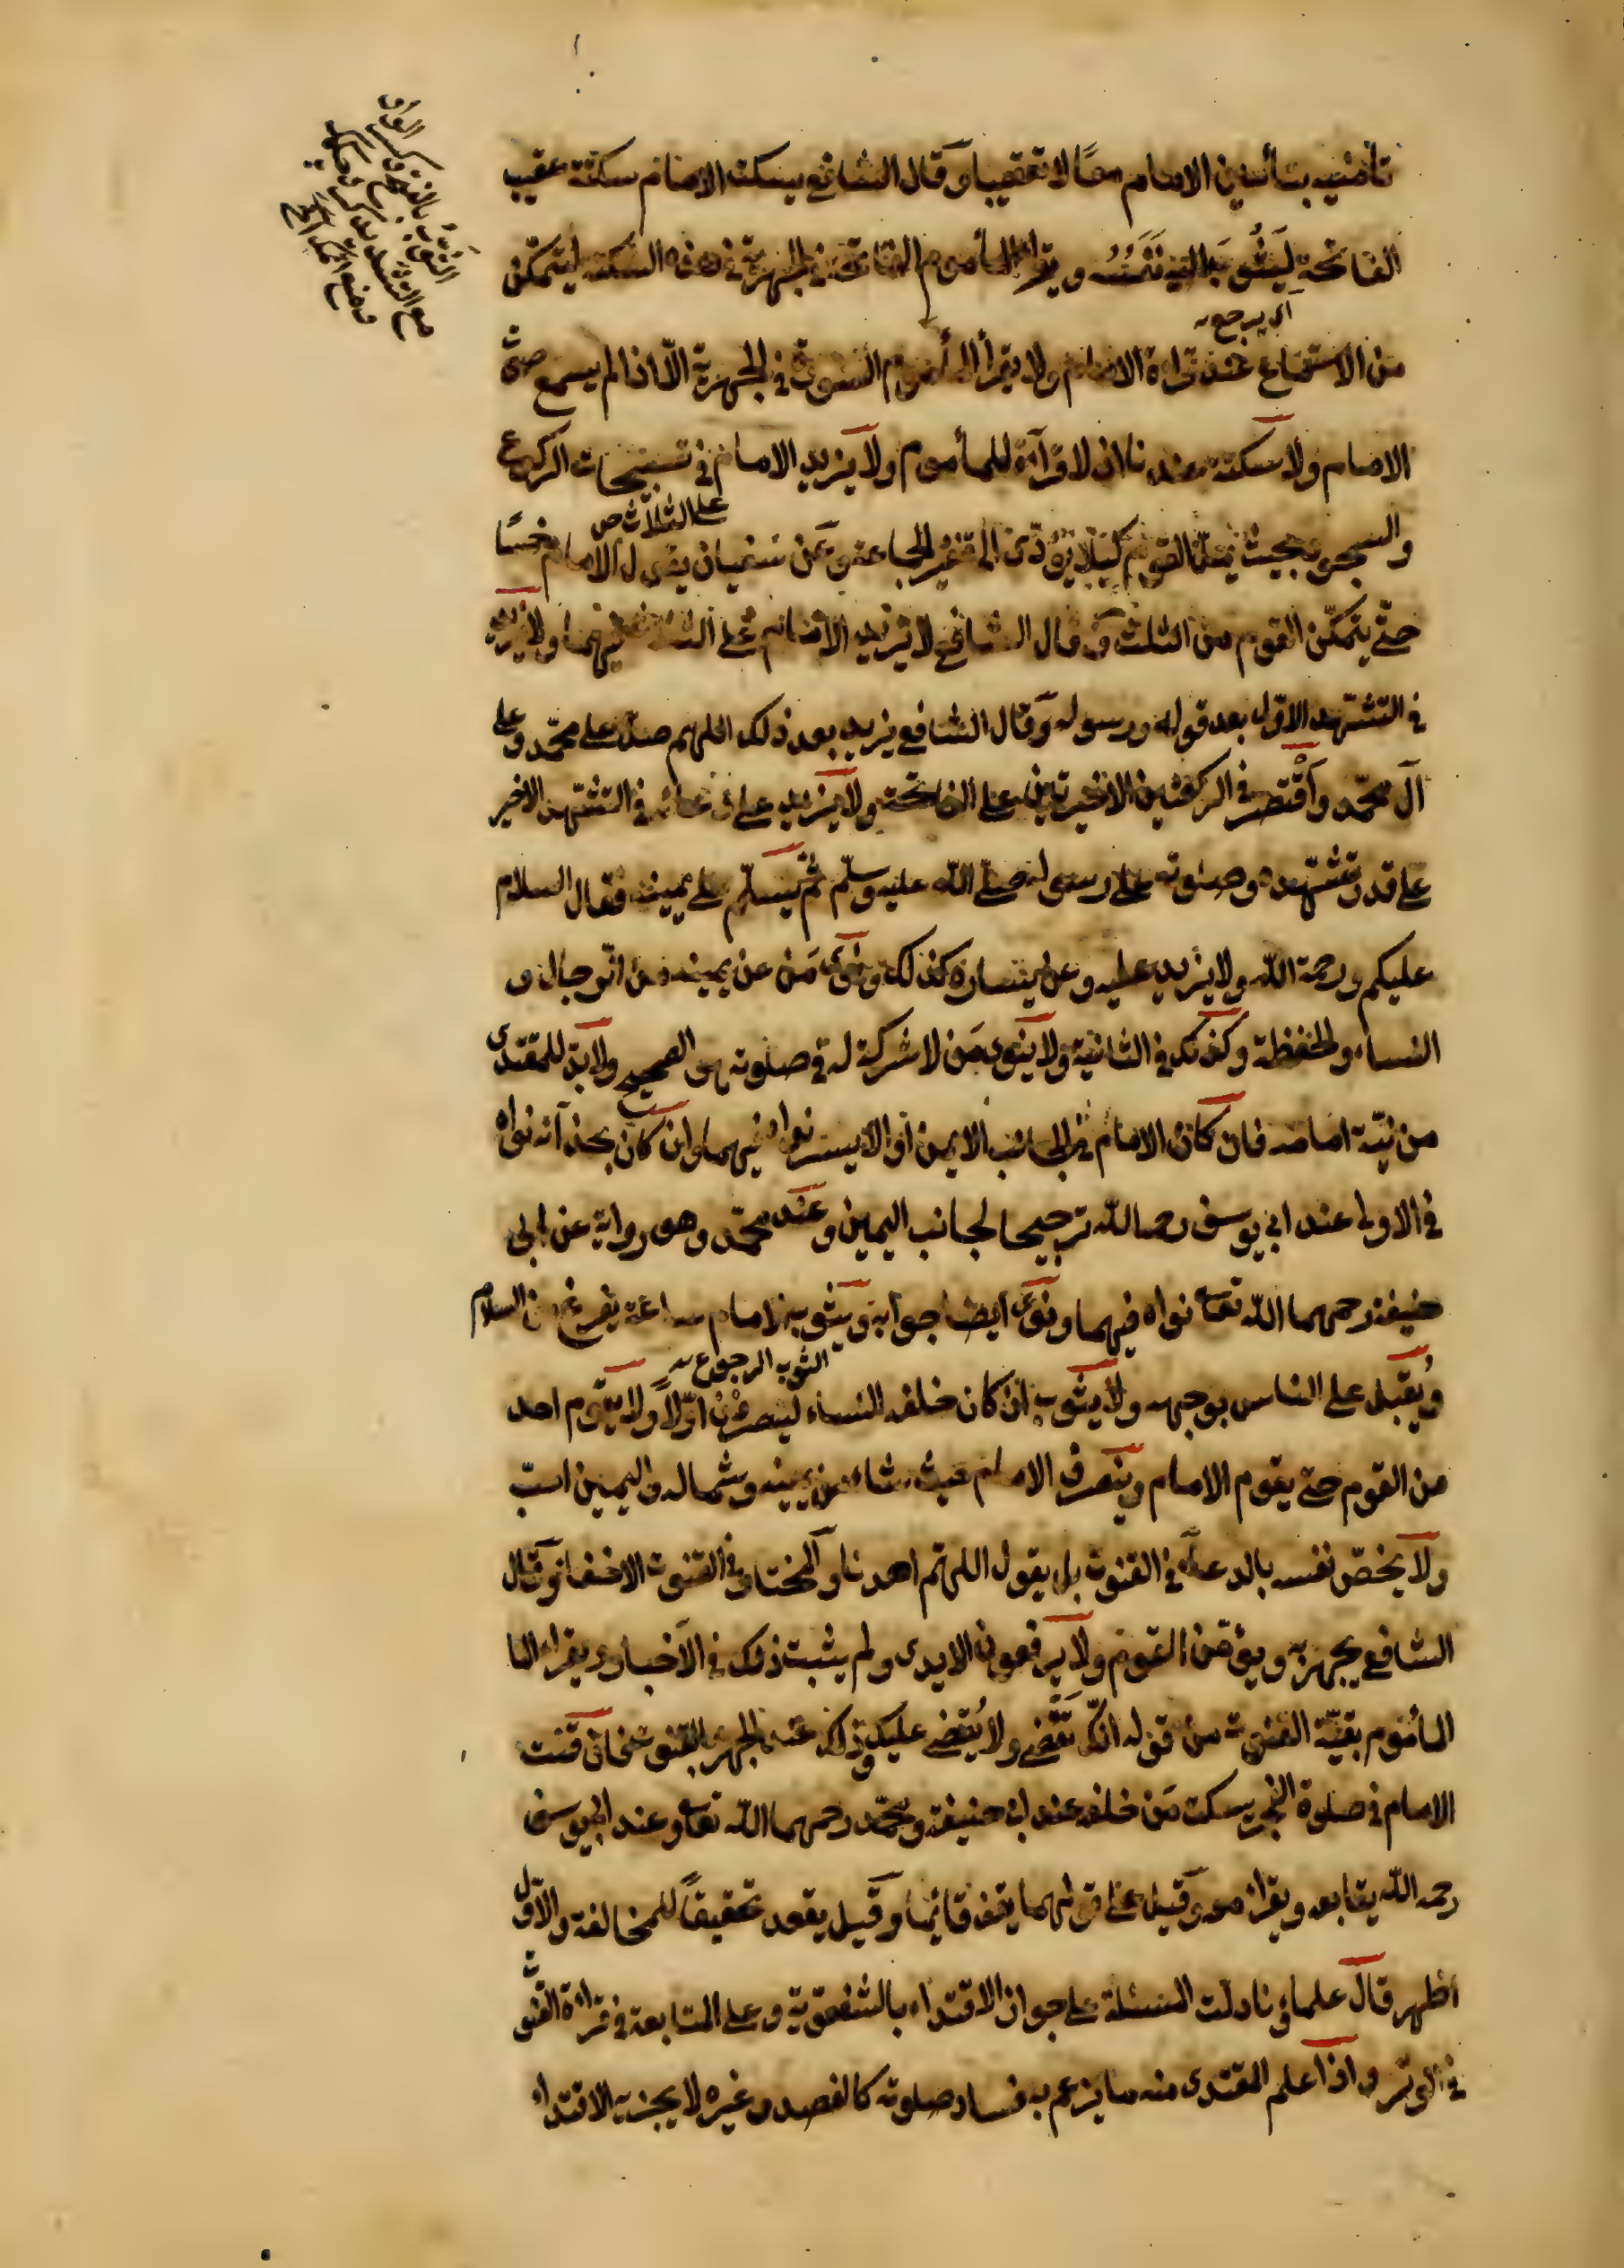 تأمينه بتأمين الامام معًا لا تعقيبا وقال الشافعى يسكت الامام سكتة عقيب
الفاتحة ليثوب اليه نفسه ويقرأ المأموم الفاتحة فى الجهرية فى هذه السكتة ليتمكن
اى يرجع
من الاستماع عند قراءة الامام ولا يقرأ المأموم السورة فى الجهرية الّا اذا لم يسمع صوت
الامام ولا سكتة عندنا اذ لا قرآءة للمأموم ولا يزيد الامام فى تسبيحات الركوع
على الثلاث ص
والسجود بحيث يملّ القوم كيلا يؤدّى الى تنفير الجماعة وعن سفيان يقول الامام خمسًا
حتّى يتمكّن القوم من الثلث وقال الشافعى لا يزيد الامام على الثلث فيهما ولا يزيد
فى التشهّد الاوّل بعد قوله ورسوله وقال الشافعى يزيد بعد ذلك اللهم صلّ على محمّد وعلى
آل محمّد واقتصر فى الركعتين الاخيرتين على الفاتحة ولا يزيد على دعائه فى التشهّد الاخير
على قدر تشهّده وصلوته على رسوله صلّى اللّه عليه وسلّم ثمّ يسلّم على يمينه فقال السلام
عليكم ورحمة اللّه ولا يزيد عليه وعن يساره كذلك ونوى مَن عن يمينه من الرجال و
النساء والحفظة وكذلك فى الثانية ولا ينوى مَن لا شركة له فى صلوته هو الصحيح ولا بدّ للمقتدى
من نيّة امامه فان كان الامام فى الجانب الايمن او الايسر نواه فيهما وان كان بحذآئه نواه
فى الاولى عند ابى يوسف رحمه اللّه ترجيحا لجانب اليمين وعند محمّد وهو رواية عن ابى
حنيفة رحمهما اللّه تعالى نواه فيهما ونوى ايضا جوابه ويثوب الامام ساعة يفرغ من السلام
الثوب الرجوع
ويُقبل على الناس بوجهه ولا يثوب ان كان خلفه النساء لينصرفن اوّلاً ولا يقوم احد
من القوم حتى يقوم الامام وينصرف الامام حيث شاء من يمينه وشماله واليمين احبّ
ولا يخصّ نفسه بالدعاء فى القنوت بل يقول اللهمّ اهدنا والمختار فى القنوت الاخفاء وقال
الشافعى يجهر به ويؤمّن القوم ولا يرفعون الايدى ولم يثبت ذلك فى الاخبار ويقراء الما
المأموم بقيّة القنوت من قوله انّك تقضى ولا يُقضى عليك وذلك عند الجهر بالقنوت فان قنت
الامام فى صلوة الفجر يسكت مَن خلفه عند ابى حنيفة ومحمّد رحمهما اللّه تعالى وعند ابى يوسف
رحمه اللّه يتابعه ويقراء معه وقيل على قولهما يقف قائما وقيل يقعد تحقيقاً للمخالفة والاوّل
اظهر قال علماؤنا دلّت المسئلة على جواز الاقتداء بالشفعوية وعلى المتابعة فى قراءة القنوت
فى الوتر واذا علم المقتدى منه ما يزعم به فساد صلوته كالفصد وغيره لا يجزيه الاقتداء